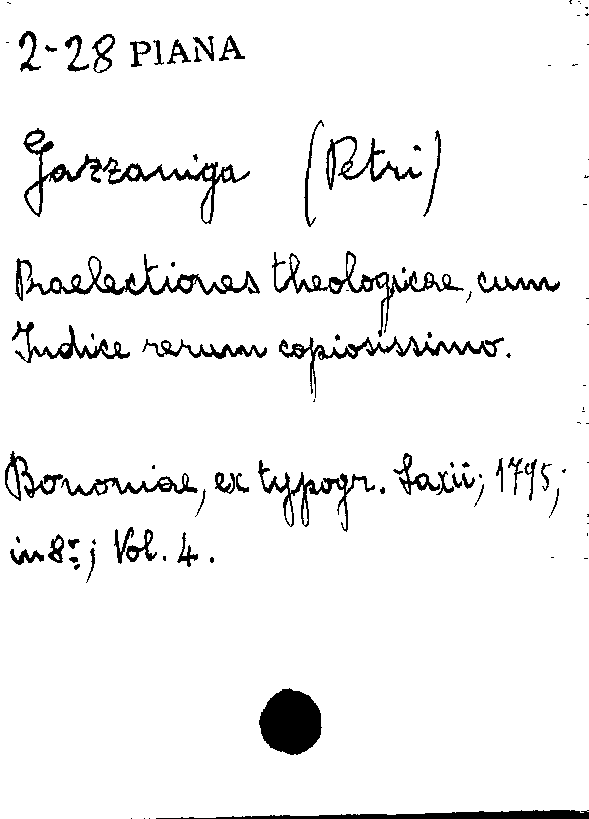 2-28 PIANA
Gazzaniga (Petri)
Praelectiones theologicae, cum
Indice rerum copiosissimo.
Bononiae, ex typogr. Saxii; 1795;
in 8º; Vol. 4.